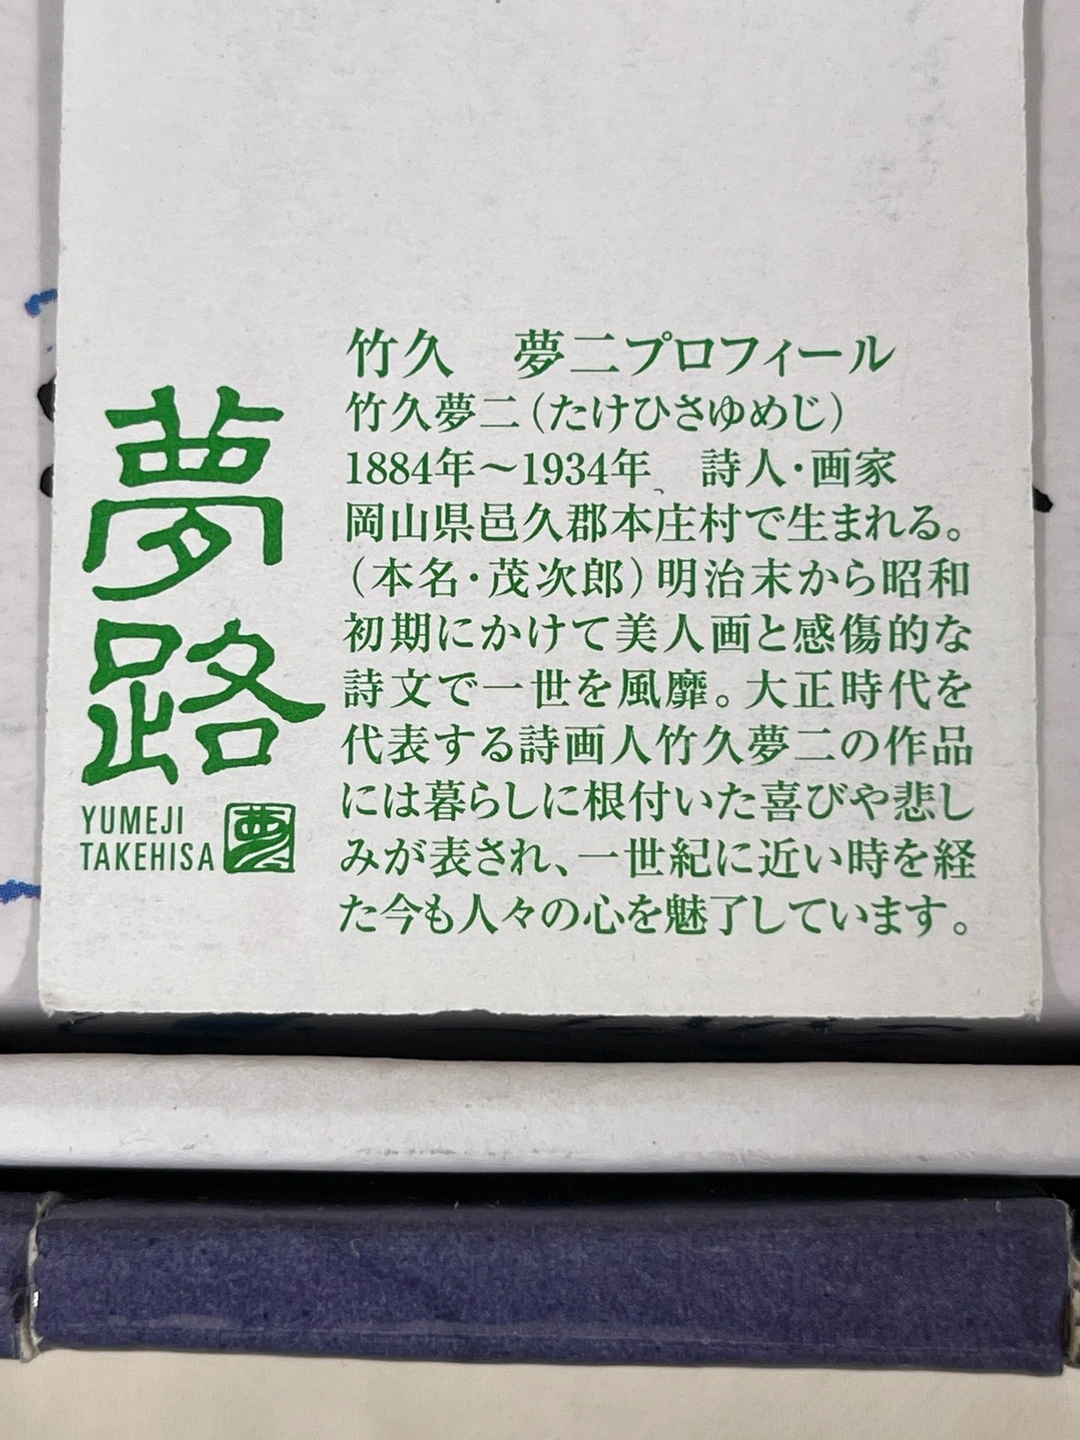 夢路
YUMEJI
TAKEHISA
竹久　夢二プロフィール
竹久夢二（たけひさゆめじ）
1884年〜1934年　詩人・画家
岡山県邑久郡本庄村で生まれる。
（本名・茂次郎）明治末から昭和
初期にかけて美人画と感傷的な
詩文で一世を風靡。大正時代を
代表する詩画人竹久夢二の作品
には暮らしに根付いた喜びや悲し
みが表され、一世紀に近い時を経
た今も人々の心を魅了しています。